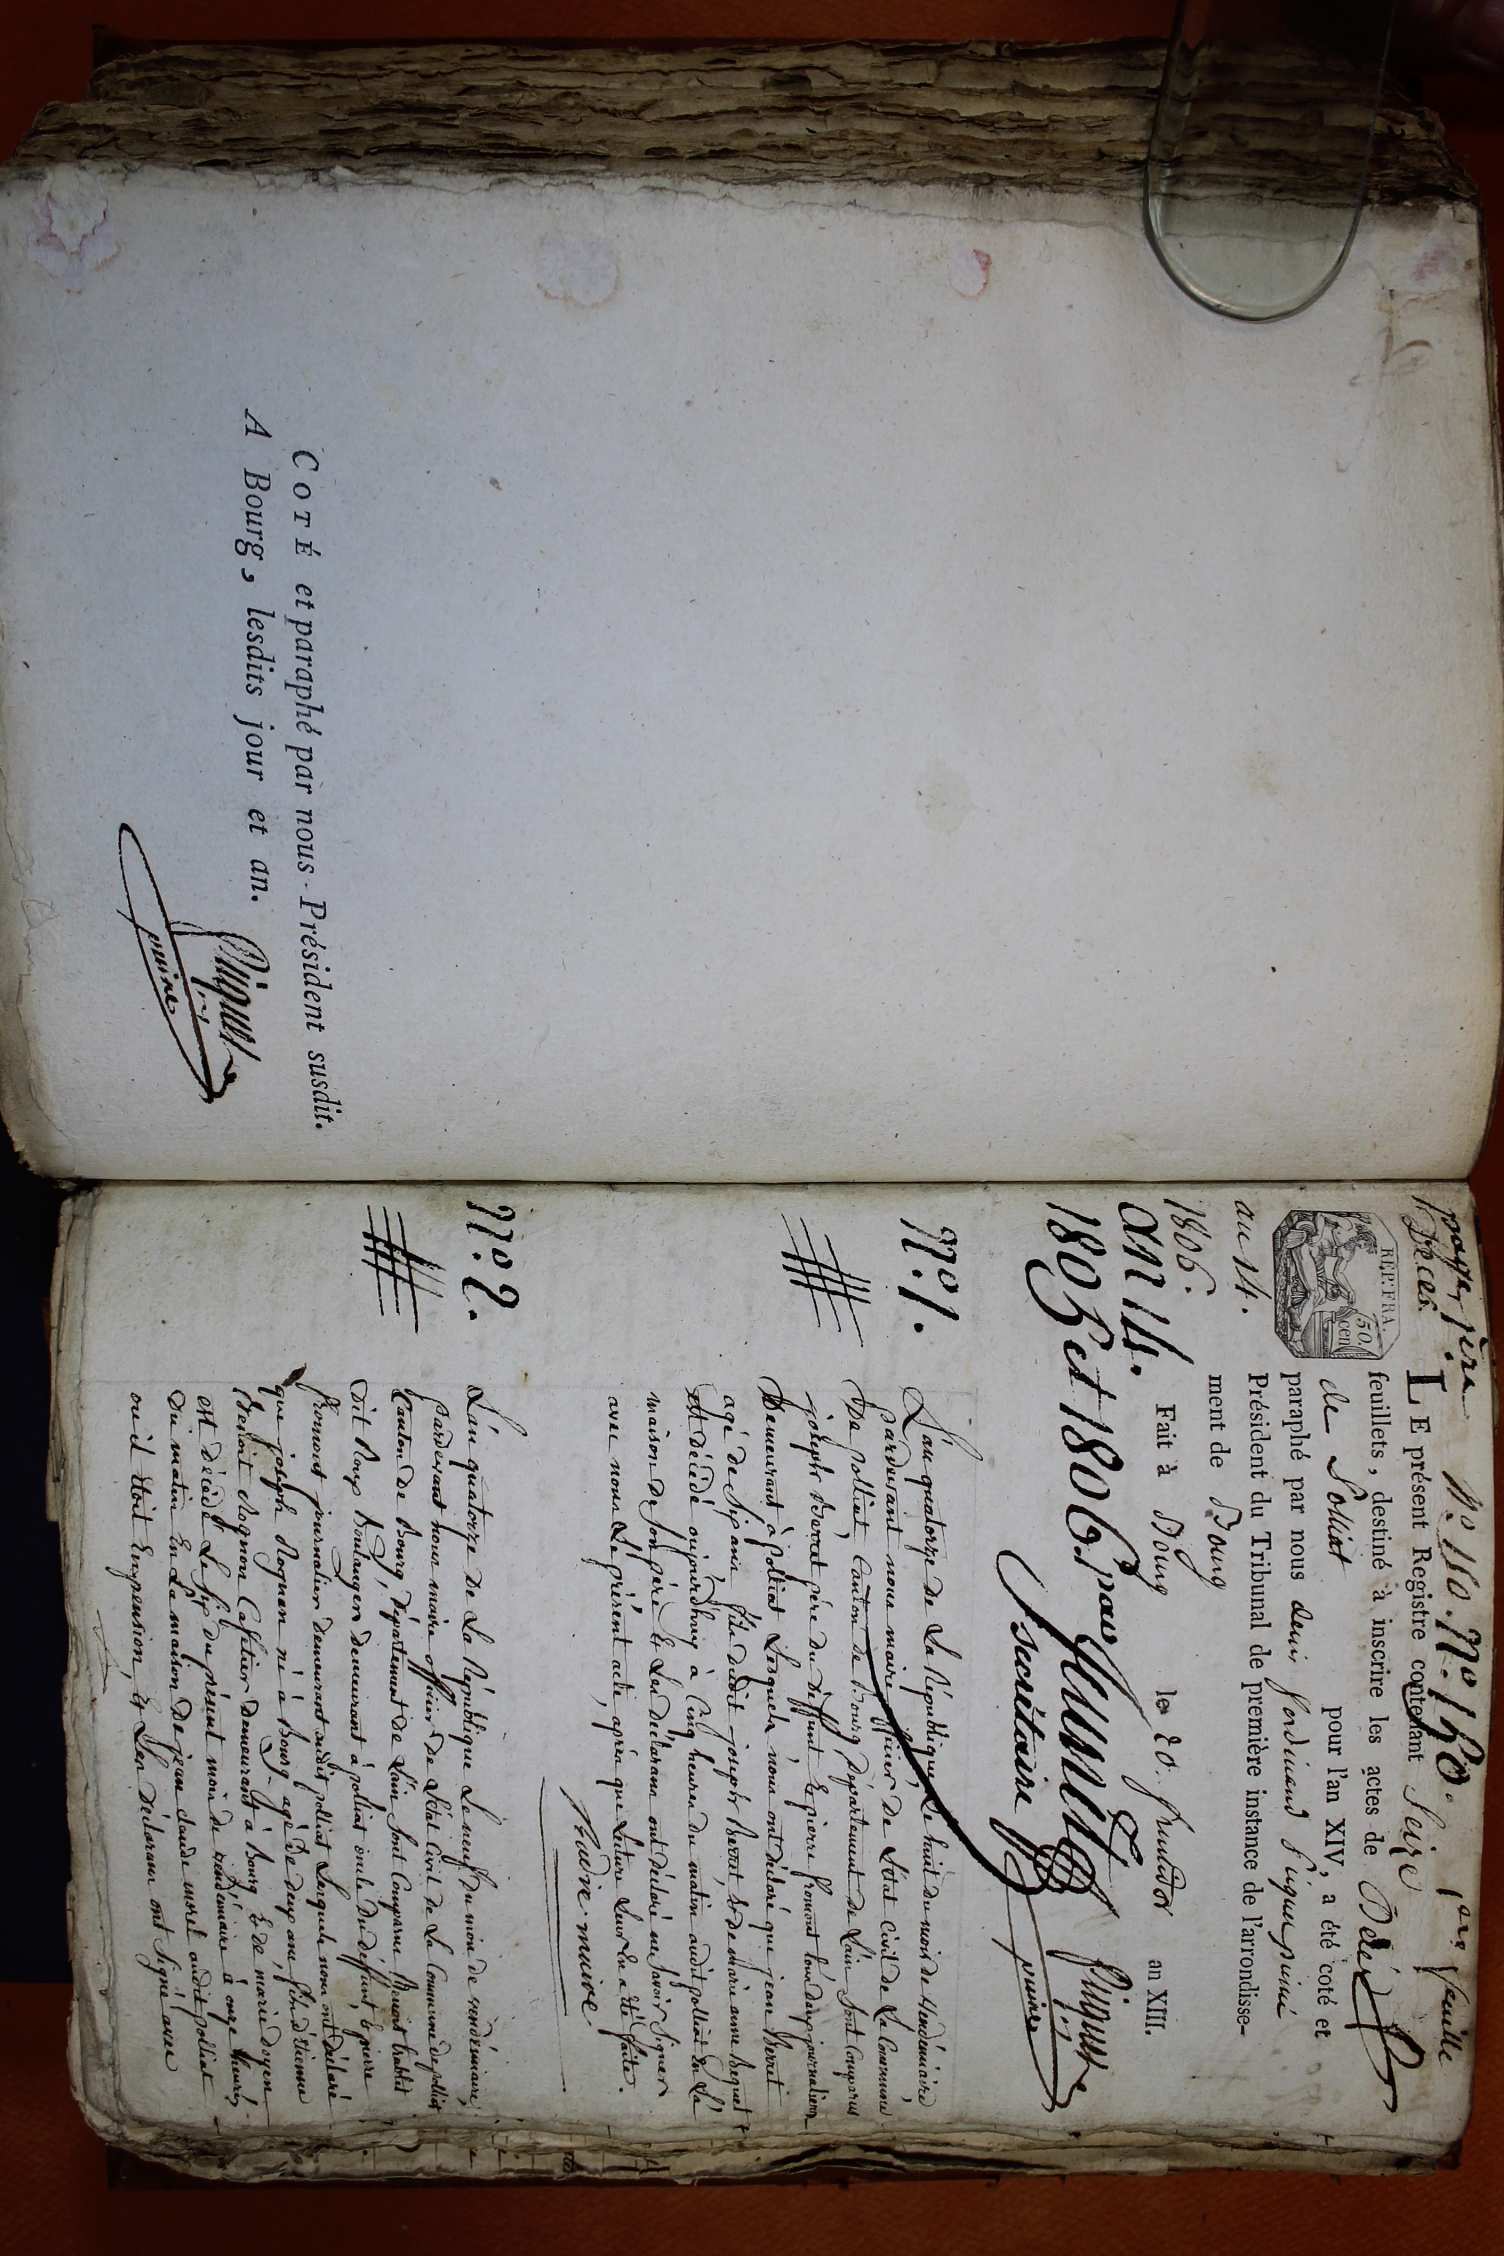 COTÉ et paraphé par nous Président susdit.
A Bourg, lesdits jour et an.
puiné
page 1ère
No. 180. No. 180. 1ere feuille
Décès.
REP. FRA.
50.
cen
LE présent Registre contenant Seize
feuillets, destiné à inscrire les actes de Décès
de Polliat pour l'an XIV, a été coté et
paraphé par nous denis ferdinand puiné
Président du Tribunal de première instance de l'arrondisse-
ment de Bourg
Fait à Bourg le 20. fructidor an XIII.
au 14.
1806.
an 14.
1805 et 1806. par
secrétaire
puiné
No. 1.
L'an quatorze de La République, Le huit du mois de Vendémiaire
Pardevant nous maire officier de L'état civil de La Commune
De polliat, Canton de Bourg Département de L'ain Sont Comparus
joseph père du deffunt & pierre fromont tous deux journaliers
Demeurant à polliat Lesquels nous ont déclaré que jean
agé de Six ans fils dudit joseph & de marie anne
est décédé aujourdhuy à Cinq heures du matin audit polliat En La
maison de Son père & Les déclarans ont déclaré ne Savoir Signer
avec nous Le présent acte, après que Lecture Leur En a été faite.
maire
No. 2.
L'an quatorze de La République Le neuf du mois de vendémiaire,
Pardevant nous maire officier de L'état Civil de La Commune de polliat
Canton de Bourg, Département de L'ain Sont Comparus Benoit
dit Boulanger demeurant à polliat oncle du deffunt, & pierre
fromont journalier demeurant audit polliat Lesquels nous ont déclaré
que joseph Rognon né à Bourg agé de deux ans fils d'étienne
Benoit Rognon demeurant à Bourg & de marie
est décédé Le Six du présent mois de vendémiaire à onze heures
Du matin En La maison de jean claude morel audit polliat
où il étoit En pension, & Les Déclarans ont Signé avec